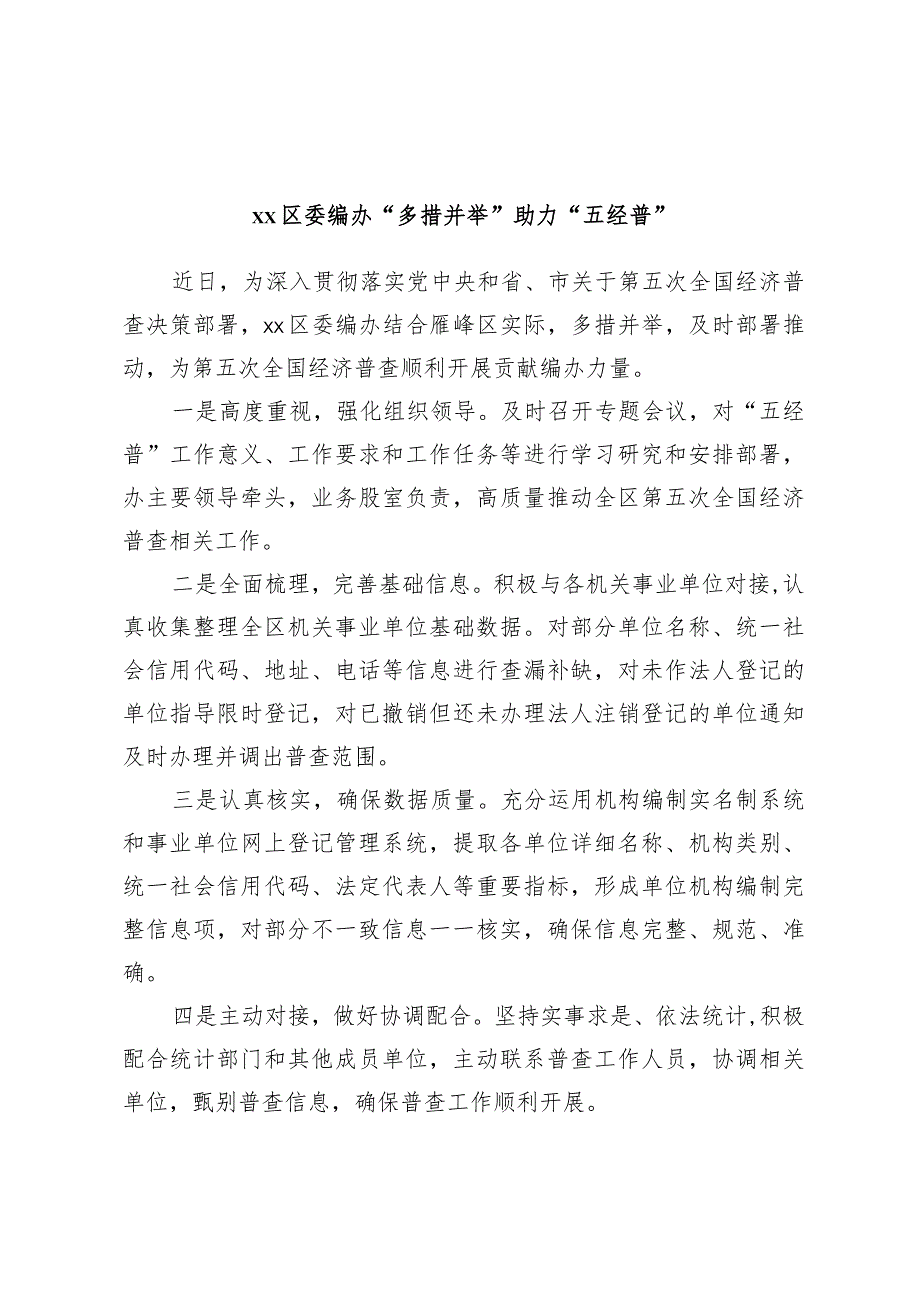 xx区委编办“多措并举”助力“五经普”
近日，为深入贯彻落实党中央和省、市关于第五次全国经济普
查决策部署，xx区委编办结合雁峰区实际，多措并举，及时部署推
动，为第五次全国经济普查顺利开展贡献编办力量。
一是高度重视，强化组织领导。及时召开专题会议，对“五经
普”工作意义、工作要求和工作任务等进行学习研究和安排部署，
办主要领导牵头，业务股室负责，高质量推动全区第五次全国经济
普查相关工作。
二是全面梳理，完善基础信息。积极与各机关事业单位对接,认
真收集整理全区机关事业单位基础数据。对部分单位名称、统一社
会信用代码、地址、电话等信息进行查漏补缺，对未作法人登记的
单位指导限时登记，对已撤销但还未办理法人注销登记的单位通知
及时办理并调出普查范围。
三是认真核实，确保数据质量。充分运用机构编制实名制系统
和事业单位网上登记管理系统，提取各单位详细名称、机构类别、
统一社会信用代码、法定代表人等重要指标，形成单位机构编制完
整信息项，对部分不一致信息一一核实，确保信息完整、规范、准
确。
四是主动对接，做好协调配合。坚持实事求是、依法统计,积极
配合统计部门和其他成员单位，主动联系普查工作人员，协调相关
单位，甄别普查信息，确保普查工作顺利开展。